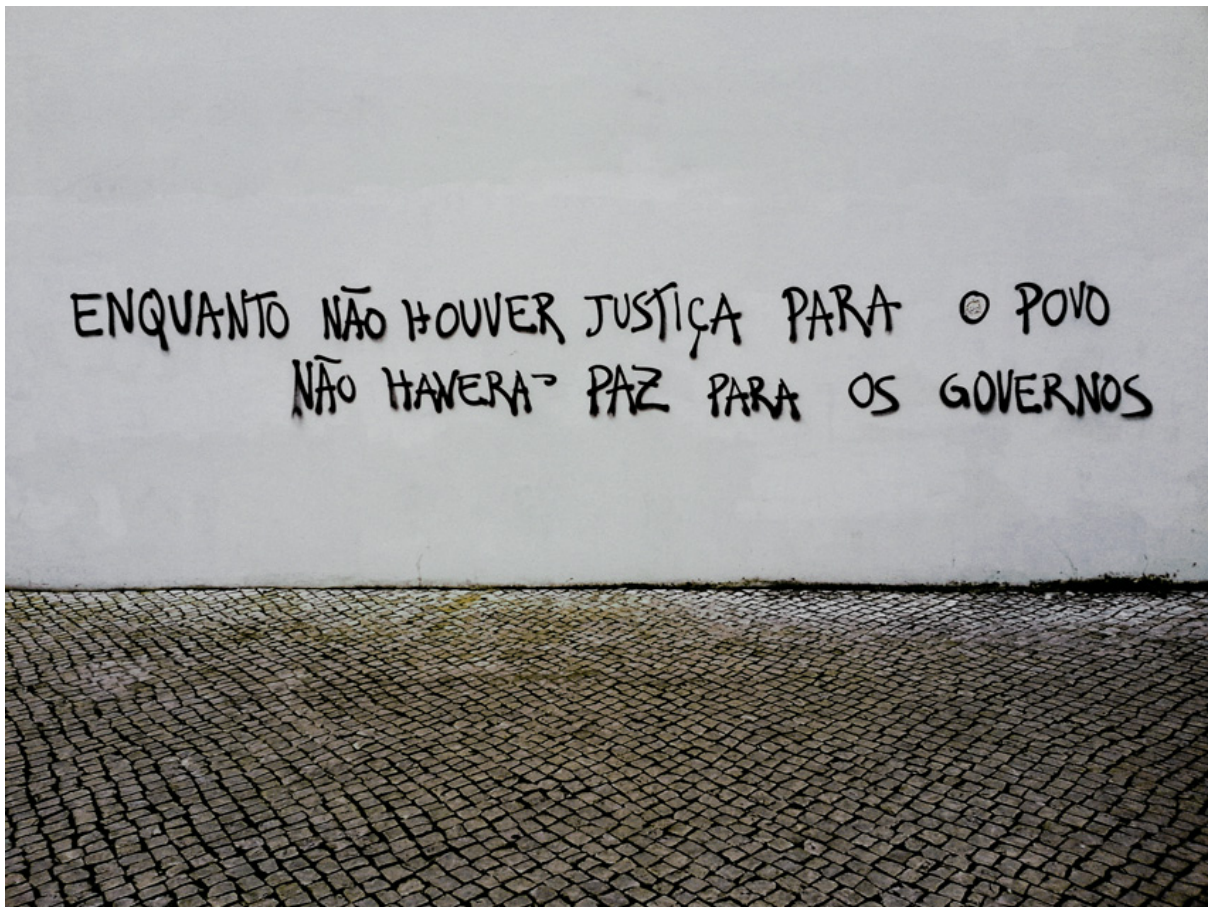 ENQUANTO NÃO HOUVER JUSTIÇA PARA O POVO
NÃO HAVERÁ PAZ PARA OS GOVERNOS